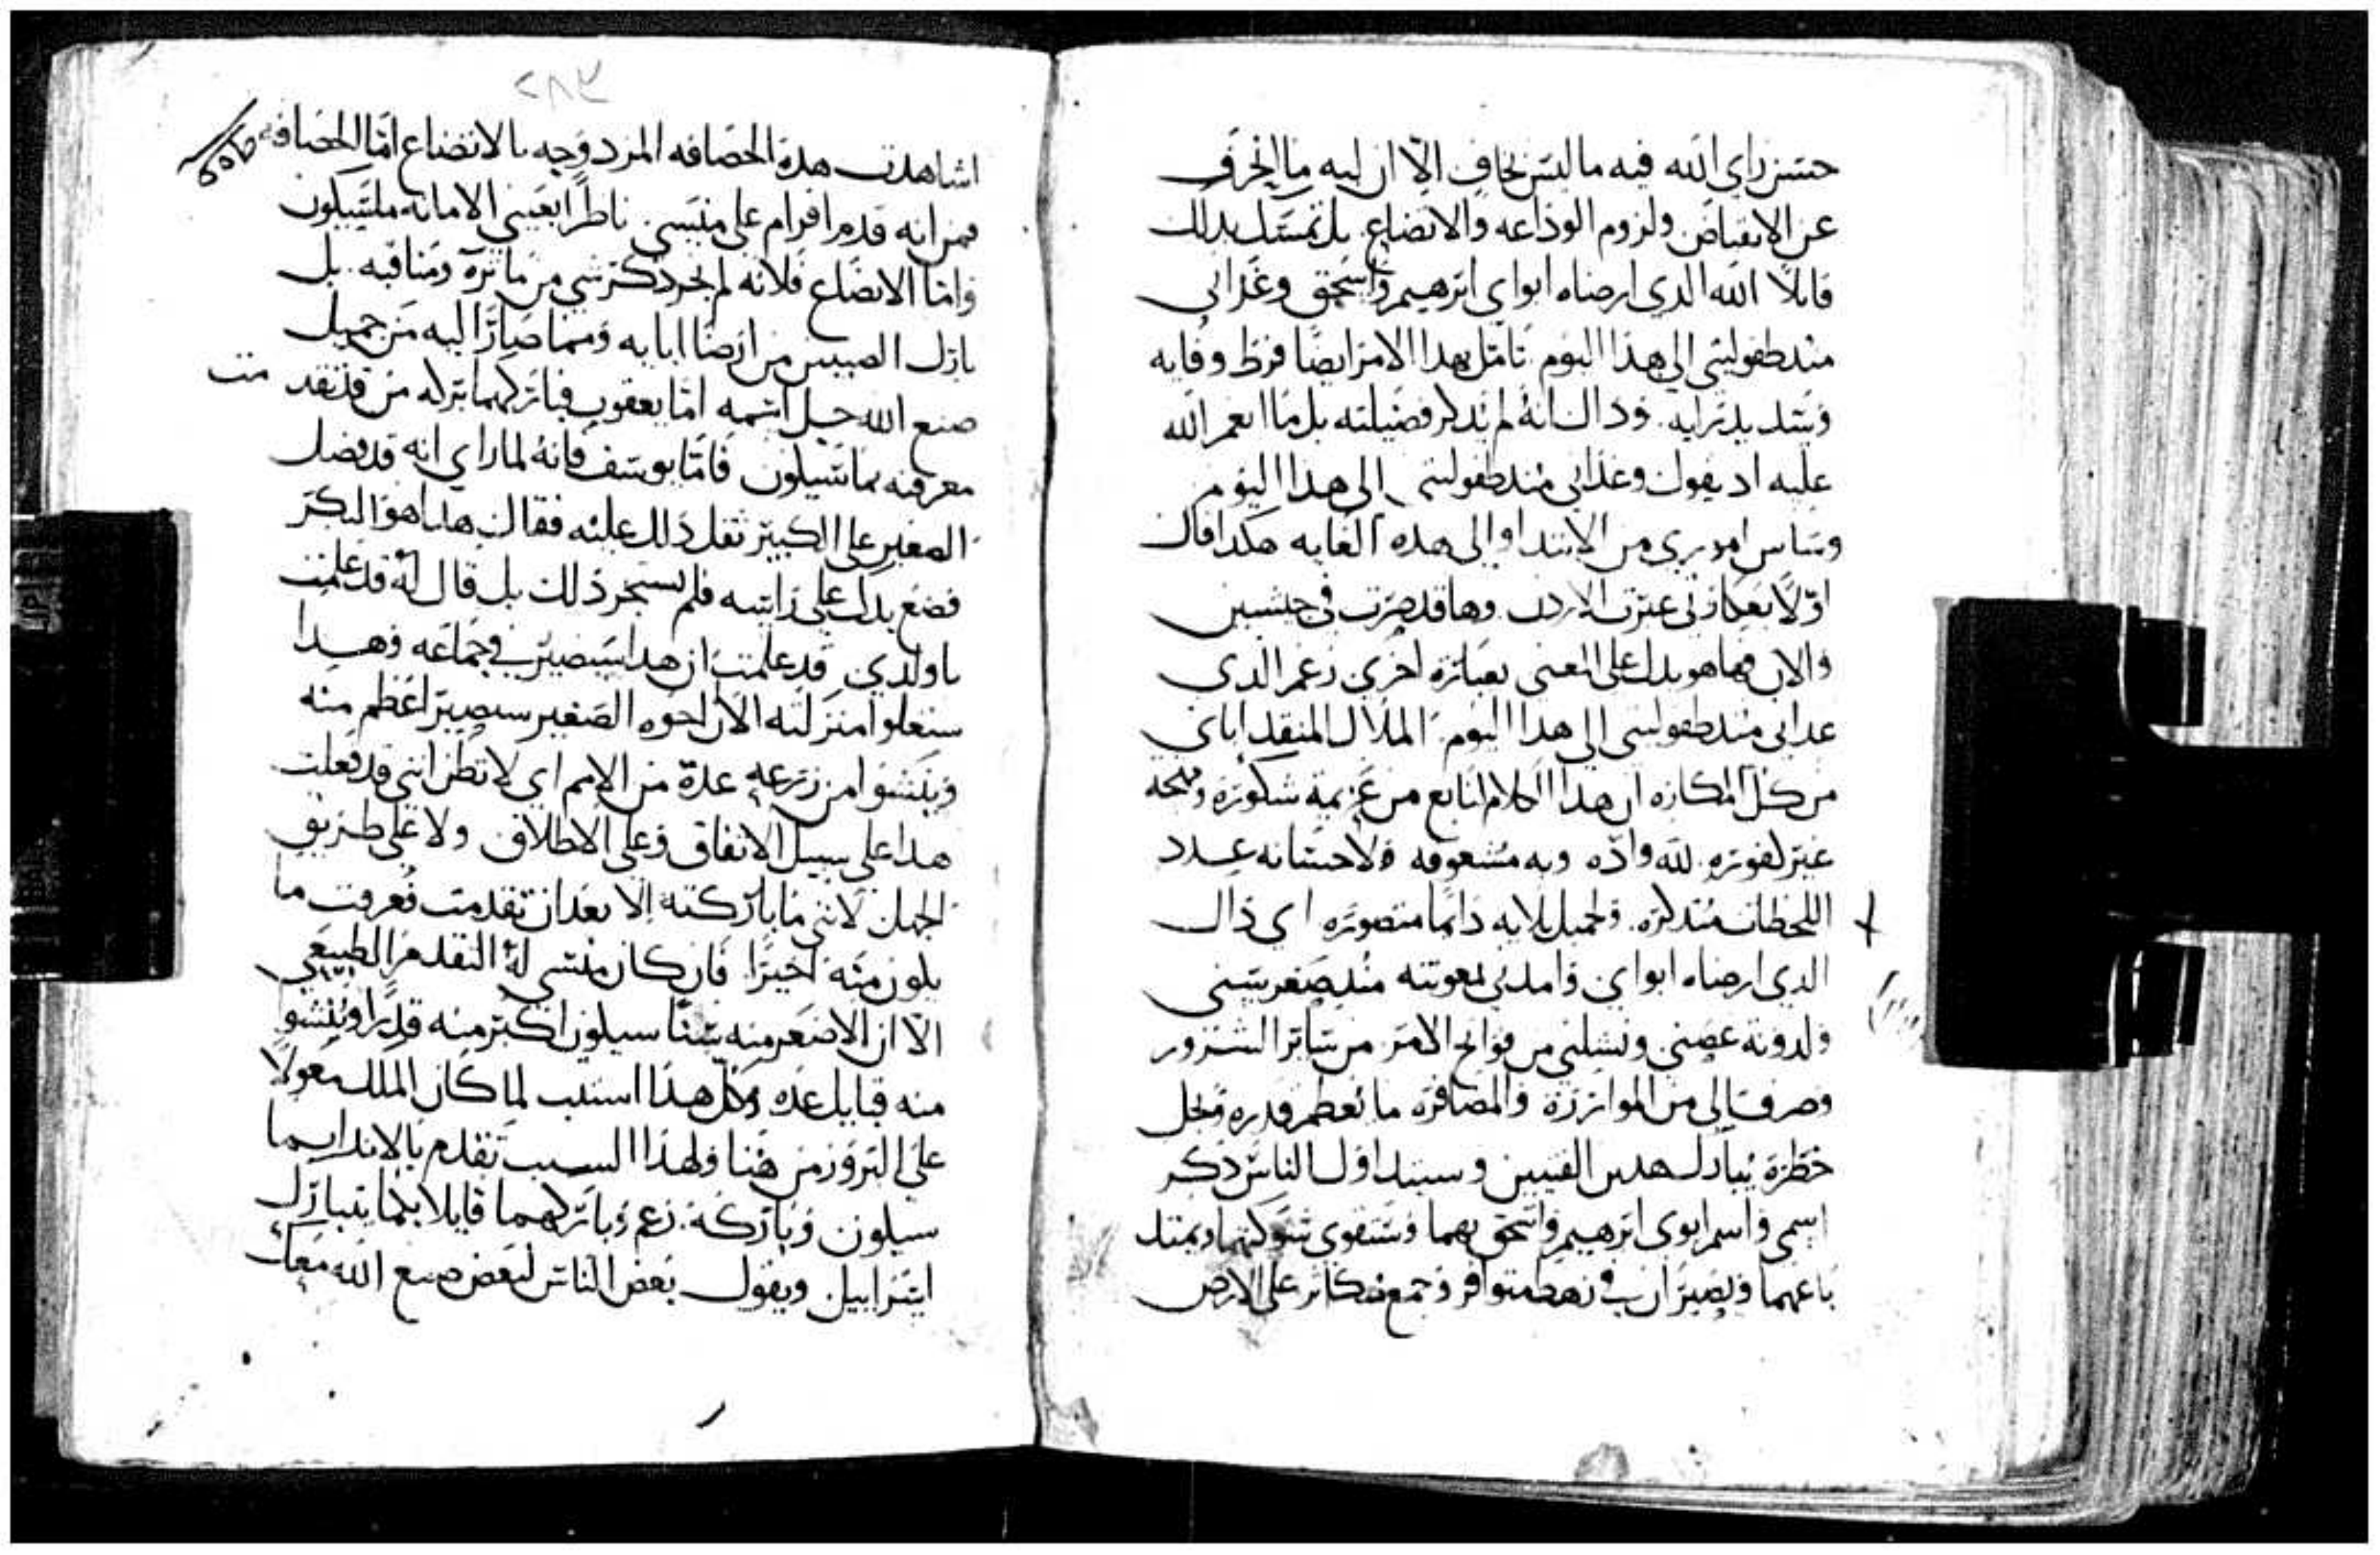 حسن راي الله فيه ما ليس بخافٍ الّا ان ليه ما انحرف
عن الانقباض ولزوم الوداعه والاتضاع بل تمسك بذلك
قايلاً الله الدى ارضاه ابواي ابرهيم واسحق وغذانى
مند طفوليتى الى هذا اليوم تامل بهدا الامر ايضًا فرط وفايه
وسداد رايه وذاك انهُ لم يذكر فضيلته بل ما انعم الله
عليه اد يقول وغذانى مند طفوليتى الى هدا اليوم
وساس امورى من الابتدا والى هده الغايه هكدا قال
اوّلاً بعكازتى عبرت الاردن وها قد صرت فى جيشين
والان فها هو يدل على المعنى بعبارة اخرى زعم الدي
غدانى مند طفوليتى الى هدا اليوم الملاك المنقد اياي
من كل المكاره ان هدا الكلام نابع من عزيمة شكوره ومهجه
غير كفوره لله وادّه وبه مشغوفه ولاحسانه عدد
اللحظات متدكره ولجميل بلايه دايمًا متصوره اى ذاك
الدى ارضاه ابواى وامدنى بمعونته مند صغر سنى
ولدونه غصنى ونشلنى من فواتح الامر من ساير الشرور
وصرف الى من الموازرة والمضافره ما يعظم قدره ويجل
خطره يبارك هدين الفتيين وسيتداول الناس ذكر
اسمى واسم ابوى ابرهيم واسحق بهما وستقوى شوكتهما ويمتد
باعهما ويصيران فى رهط متوافر وجمع متكاثر على الارض
٢٨٣
اشاهدت هدة الحصافه المزدوجه بالاتضاع امّا الحصافه
فمن انه قدم افرام على منسى ناظرًا بعينى الامانه ما سيكون
وامّا الاتضاع فلانه لم يجر ذكر شي من ماثره ومناقبه بل
بارك الصبيين من ارضا ابايه ومما صار اليه من جميل
صنع الله جل اسمه امّا يعقوب فباركهما بركه من قد تقدمت
معرفته بما سيكون فامّا يوسف فانهُ لما راي انه قد فضل
الصغير على الكبير ثقل ذلك عليه فقال هدا هو البكر
فضع يدك على راسه فلم يستجر ذلك بل قال لهُ قد علمت
يا ولدي قد علمت ان هدا سيصير فى جماعه وهدا
ستعلوا منزلته الا ان اخوه الصغير سيصير اعظم منه
وينشوا من زرعه عدة من الامم اي لا تظن اننى قد فعلت
هدا على سبيل الاتفاق وعلى الاطلاق ولا على طريق
الجهل لاننى ما باركته الا بعد ان تقدمت فعرفت ما
يكون منه اخيرًا فان كان منسى لهُ التقدم الطبيعي
الّا ان الاصغر منه سنًا سيكون اكبر منه قدرًا وينشوا
منه قبايل عده وكل هدا استتب لما كان الملك معولاً
على البروز من هنا ولهدا السبب تقدم بالاندار بما
سيكون وباركهُ زعم وباركهما قايلا بكما يتبارك
اسراييل ويقول بعض الناس لبعض صنع الله معك